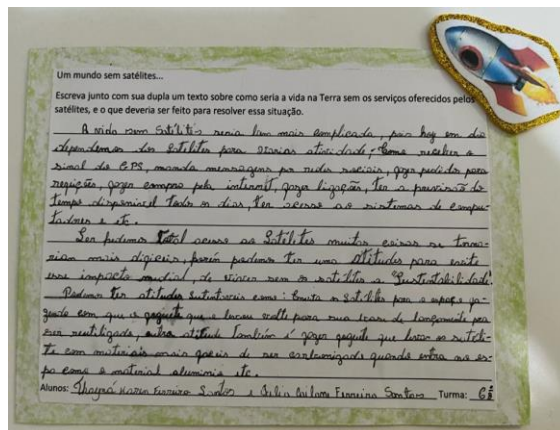 Um mundo sem satélites...
Escreva junto com sua dupla um texto sobre como seria a vida na Terra sem os serviços oferecidos pelos
satélites, e o que deveria ser feito para resolver essa situação.
A vida sem Satélites seria bem mais complicada, pois hoje em dia
dependemos dos Satélites para várias atividade, Como receber o
sinal do GPS, manda mensagens por redes sociais, fazer pedidos para
refeições, fazer compra pela internet, fazer ligação, ter a previsão do
tempo disponível todos os dias, ter acesso ao sistemas de compu-
tadores e etc.
Ser pudemos total acesso ao Satélites muitas coisas se torna-
riam mais difíceis, porém podemos ter uma atitudes para evite
esse impacto mudial, de viver sem os satélites a Sustentabilidade!
Podemos ter atitudes como: o Satélites para o espaço fa-
zendo com que o foguete que o levou volte para sua base de lançamento para
ser reutilizado, outra atitude também é fazer foguete que levar os satéli-
te com materiais mais de ser quando entra no es-
pa como o material aluminio etc.
Alunos: Karen Ferreira Santos e Ferreira Santos Turma: